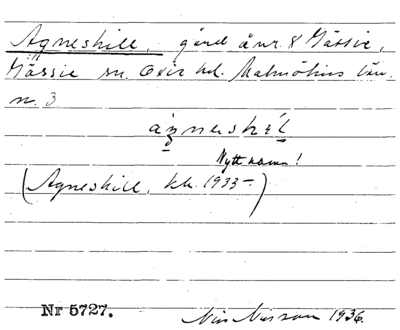 Agneshill, gård å nr. 8 Gässie,
Gässie sn. Oxie hd. Malmöhus län.
n. 3
Nytt namn!
(Agneshill, kk. 1933 –)
Nr 5727. Nils Nilsson 1936.